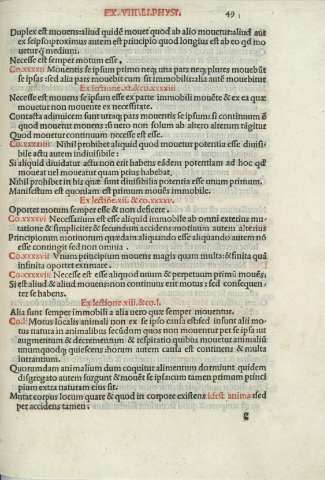 EX .VIII. EL.PHYSI. 49
Duplex est mouens:aliud quidē mouet quod ab alio mouetur:aliud aūt
ex seipso:proximus autem est principio quod longius est ab eo qđ mo
uetur q̃ medium.
Necesse est semper motum esse.
Co.xxxxii Mouentis se ipsum primo neq; una pars neq; plures mouebūt
se ipsas :sed alia pars mouebit cum sit immobilis:alia autē mouebitur
Ex lectione .xi.& co.xxxxiii
Necesse est mouens se ipsum esse ex parte immobili mouēte & ex ea quæ
mouetur non mouente ex necessitate.
Contacta adinuicem sunt utraq; pars mouentis se ipsum: si continuum ē
quod mouetur mouens :si uero non solum ab altero alterum tāgitur
Quod mouetur continuum necesse est esse.
Co.xxxxiiii Nihil prohibet aliquid quod mouetur potentia esse diuisi-
bile actu autem indiuisibile :
Si aliquid diuidatur actu non erit habens eādem potentiam ad hoc qđ
moueat uel moueatur quam prius habebat,
Nihil prohibet in his quæ sunt diuisibilia potentia esse unum primum.
Manifestum est quoniam est primum mouēs immobile.
Ex lectiōe.xii. & co.xxxxv.
Oportet motum semper esse & non deficere.
Co.xxxxvi Necessarium est esse aliquid immobile ab omni exteriori mu-
tatione & simpliciter & secundum accidens:motiuum autem alterius
Principiorum motiuorum quædam aliquando esse aliquando autem nō
esse contingit sed non omnia.
Co.xxxxvii Vnum principium mouens magis quam multa:& finita quā
infinita oportet extimare.
Co.xxxxviii Necesse est esse aliquod unum & perpetuum primū mouēs.
Si est aliud & aliud mouens:non continuus erit motus :sed consequen-
ter se habens.
Ex lectione.xiii.& co.l.
Alia sunt semper immobili a alia uero quæ semper mouentur.
Co.li Motus localis animali non ex se ipso causa est:sed insunt alii mo-
tus natura in animalibus secundum quos non mouentur per se ipsa :ut
augmentum & decrementum & respiratio quibus mouetur animaliū
unumquodq; quiescens :horum autem causa est continens & multa
intrantium.
Quorumdam animalium dum coquitur alimentum dormiunt quidem
disgregato autem surgunt & mouēt se ipsa:cum tamen primum princi
pium extra naturam eius sit.
Mutat corpus locum quare & quod in corpore existens idest anima :sed
per accidens tamen.
g